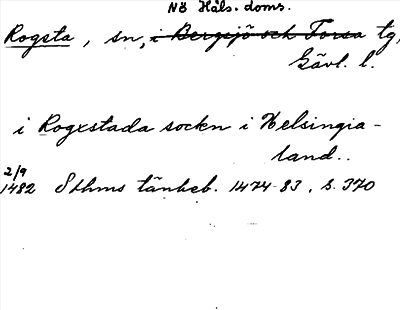 Nö Häls. doms.
Rogsta, sn, i Bergsjö och Forsa tg,
Gävl. l.
i Rogxstada sockn i Helsingia-
land..
2/9
1482 Sthms tänkeb. 1474-83, s. 370